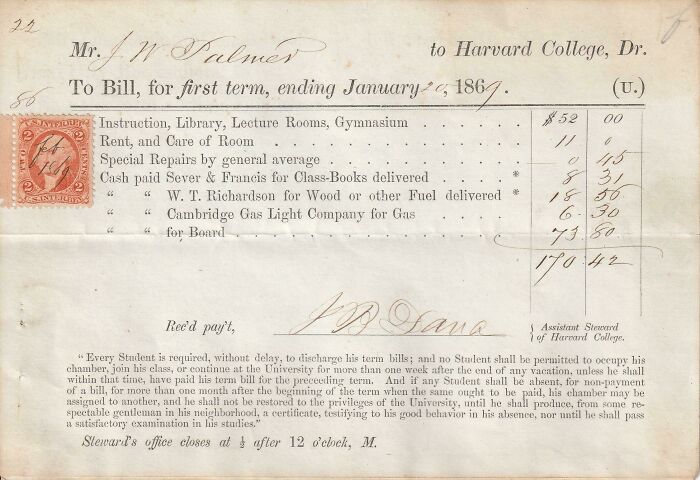 22
Mr. J W Palmer to Harvard College, Dr.
To Bill, for first term, ending January 20, 1869. (U.)
86
Instruction, Library, Lecture Rooms, Gymnasium . . . . . $52 00
Rent, and Care of Room . . . . . . . . . . . 11 0
Special Repairs by general average . . . . . . . . . 0 45
Cash paid Sever & Francis for Class-Books delivered . . . . * 8 31
" " W. T. Richardson for Wood or other Fuel delivered * 18 56
" " Cambridge Gas Light Company for Gas . . . . 6 30
" " for Board . . . . . . . . . . . . . 73 80
170 42
U.S. INTER. REV.
TWO CENTS
2 2
2 2
feb
1869
Rec'd pay't, J B Dana } Assistant Steward
of Harvard College.
"Every Student is required, without delay, to discharge his term bills; and no Student shall be permitted to occupy his
chamber, join his class, or continue at the University for more than one week after the end of any vacation, unless he shall
within that time, have paid his term bill for the preceeding term. And if any Student shall be absent, for non-payment
of a bill, for more than one month after the beginning of the term when the same ought to be paid, his chamber may be
assigned to another, and he shall not be restored to the privileges of the University, until he shall produce, from some re-
spectable gentleman in his neighborhood, a certificate, testifying to his good behavior in his absence, nor until he shall pass
a satisfactory examination in his studies."
Steward's office closes at ½ after 12 o'clock, M.